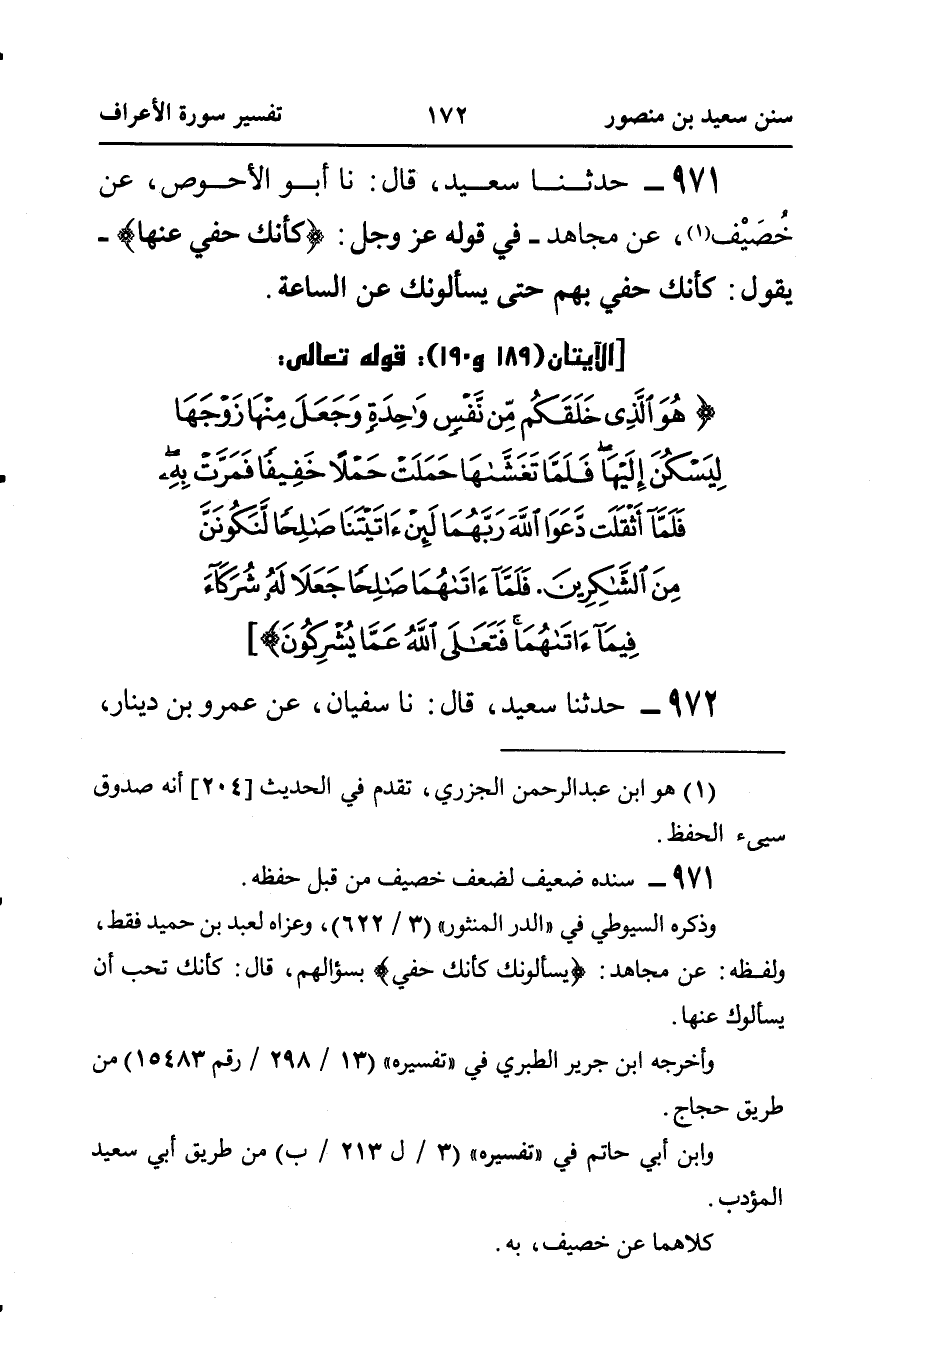 سنن سعيد بن منصور ١٧٢ تفسير سورة الأعراف
٩٧١ ـ حدثـنـا سعـيـد، قال: نا أبـو الأحـوص، عن
خُصَيْف(١)، عن مجاهد ـ في قوله عز وجل: ﴿كأنك حفي عنها﴾ ـ
يقول: كأنك حفي بهم حتى يسألونك عن الساعة.
[الآيتان(١٨٩ و١٩٠): قوله تعالى:
﴿ هُوَ ٱلَّذِى خَلَقَكُم مِّن نَّفْسٍ وَٰحِدَةٍ وَجَعَلَ مِنْهَا زَوْجَهَا
لِيَسْكُنَ إِلَيْهَا ۖ فَلَمَّا تَغَشَّىٰهَا حَمَلَتْ حَمْلًا خَفِيفًا فَمَرَّتْ بِهِۦ ۖ
فَلَمَّآ أَثْقَلَت دَّعَوَا ٱللَّهَ رَبَّهُمَا لَئِنْ ءَاتَيْتَنَا صَٰلِحًا لَّنَكُونَنَّ
مِنَ ٱلشَّٰكِرِينَ. فَلَمَّآ ءَاتَىٰهُمَا صَٰلِحًا جَعَلَا لَهُۥ شُرَكَآءَ
فِيمَآ ءَاتَىٰهُمَا ۚ فَتَعَٰلَى ٱللَّهُ عَمَّا يُشْرِكُونَ﴾]
٩٧٢ ـ حدثنا سعيد، قال: نا سفيان، عن عمرو بن دينار،
(١) هو ابن عبدالرحمن الجزري، تقدم في الحديث [٢٠٤] أنه صدوق
سيىء الحفظ.
٩٧١ ـ سنده ضعيف لضعف خصيف من قبل حفظه.
وذكره السيوطي في «الدر المنثور» (٣ / ٦٢٢)، وعزاه لعبد بن حميد فقط،
ولفـظه: عن مجاهد: ﴿يسألونك كأنك حفي﴾ بسؤالهم، قال: كأنك تحب أن
يسألوك عنها.
وأخرجه ابن جرير الطبري في «تفسيره» (١٣ / ٢٩٨ / رقم ١٥٤٨٣) من
طريق حجاج.
وابن أبي حاتم في «تفسيره» (٣ / ل ٢١٣ / ب) من طريق أبي سعيد
المؤدب.
كلاهما عن خصيف، به.